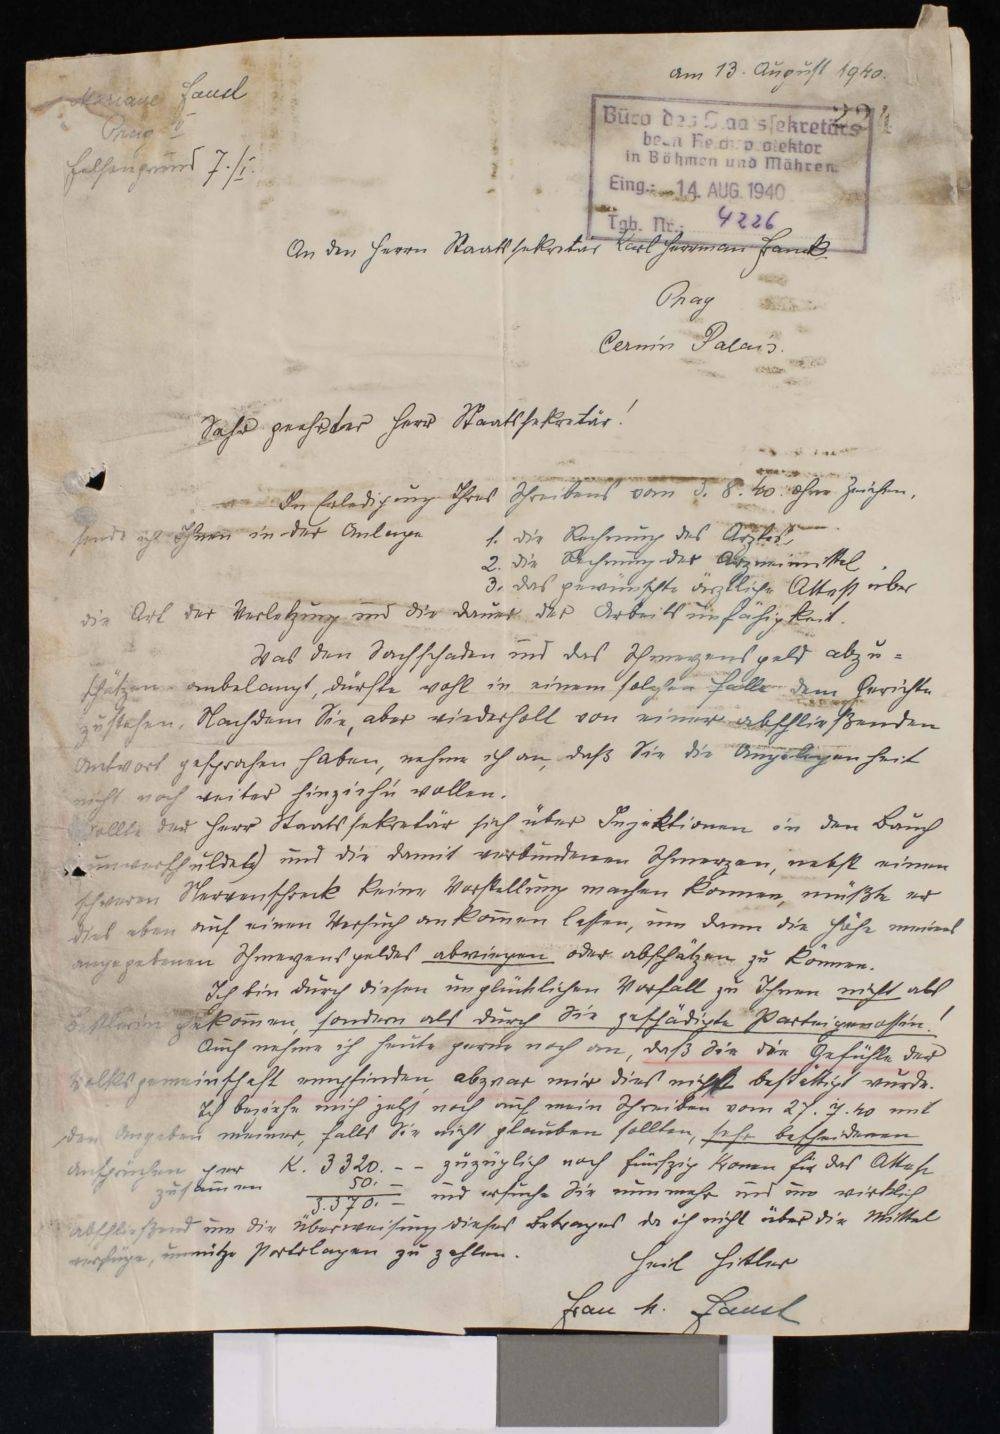 am 13. August 1940.
Mariane Hansl
Prag V
Felsengrund 7./I.
224
Büro des Staatssekretärs
beim Reichsprotektor
in Böhmen und Mähren.
Eing.: 14. AUG. 1940
Tgb. Nr.: 4226
An den Herrn Staatssekretär Karl Herrman Frank.
Prag
Cernin Palais.
Sehr geehrter Herr Staatssekretär!
In Erledigung Ihres Schreibens vom 5. 8. 40. ohne Zeichen,
sende ich Ihnen in der Anlage 1. die Rechnung des Arztes,
2. die Rechnung der Arzneimittel,
3. das gewünschte ärztliche Attest über
die Art der Verletzung und die Dauer der Arbeitsunfähigkeit.
Was den Sachschaden und das Schmerzensgeld abzu=
schätzen anbelangt, dürfte wohl in einem solchen Falle dem Gerichte
zustehen. Nachdem Sie, aber wiederholt von einer abschließenden
Antwort gesprochen haben, nehme ich an, daß Sie die Angelegenheit
nicht noch weiter hinziehn wollen.
Sollte der Herr Staatssekretär sich über Injektionen in den Bauch
(unverschuldete) und die damit verbundenen Schmerzen, nebst einen
schweren Nervenschock keine Vorstellung machen können, müßte er
dies eben auf einen Versuch ankommen lassen, um dann die Höhe meines
angegebenen Schmerzensgeldes abwiegen oder abschätzen zu können.
Ich bin durch diesen unglücklichen Vorfall zu Ihnen nicht als
Bettlerin gekommen, sondern als durch Sie geschädigte Parteigenossin!
Auch nehme ich heute gerne noch an, daß Sie die Gefühle der
Volksgemeinschaft empfinden, abzwar mir dies nicht bestättigt wurde.
Ich beziehe mich jetzt noch auf mein Schreiben vom 27. 7. 40 mit
den Angaben meiner, falls Sie nicht glauben sollten, sehr bescheidenen
Ansprüchen per K. 3320.-- zuzüglich noch fünfzig Kronen für das Attest
zusammen 50.-
3.370.- und ersuche Sie nunmehr und nun wirklich
abschließend um die Überweisung dieses Betrages da ich nicht über die Mittel
verfüge, unnütze Portolagen zu zahlen.
Heil Hitler
Frau M. Hansl